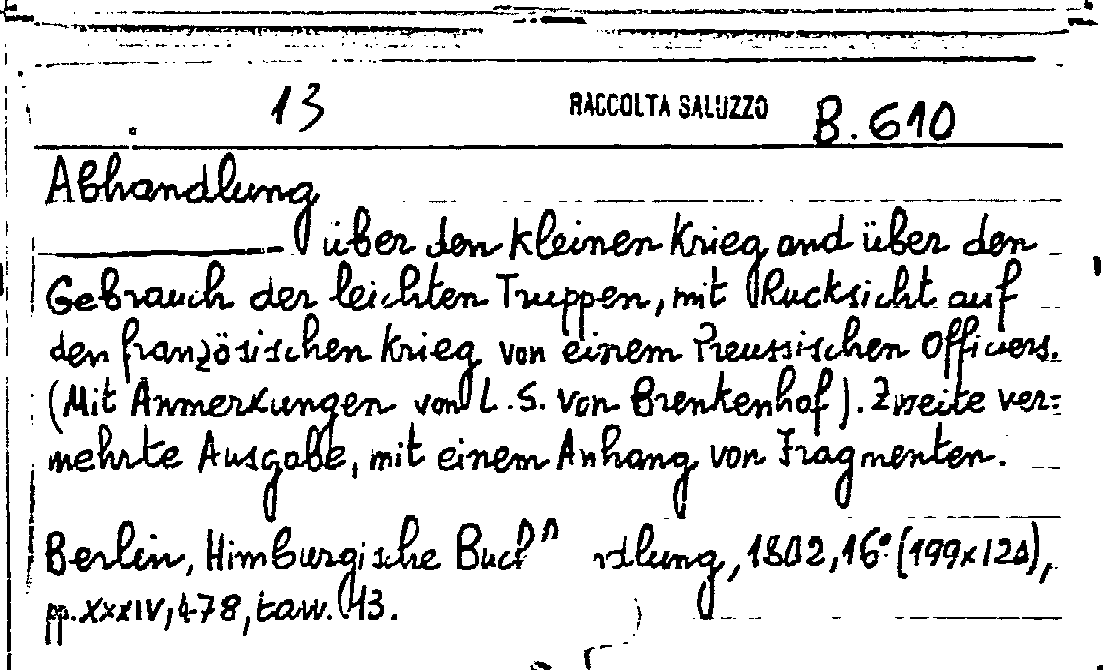 13 RACCOLTA SALUZZO B. 610
Abhandlung
über den kleinen Krieg and über den
Gebrauch der leichten Truppen, mit Rucksicht auf
den französischen Krieg von einem Preussischen Officiers.
(Mit Anmerkungen von L. S. von Brenkenhof). Zweite ver=
mehrte Ausgabe, mit einem Anhang von Fragmenten.
Berlin, Himburgische 1802, 16° (199x120),
pp. XXXIV, 478, taw. 13.